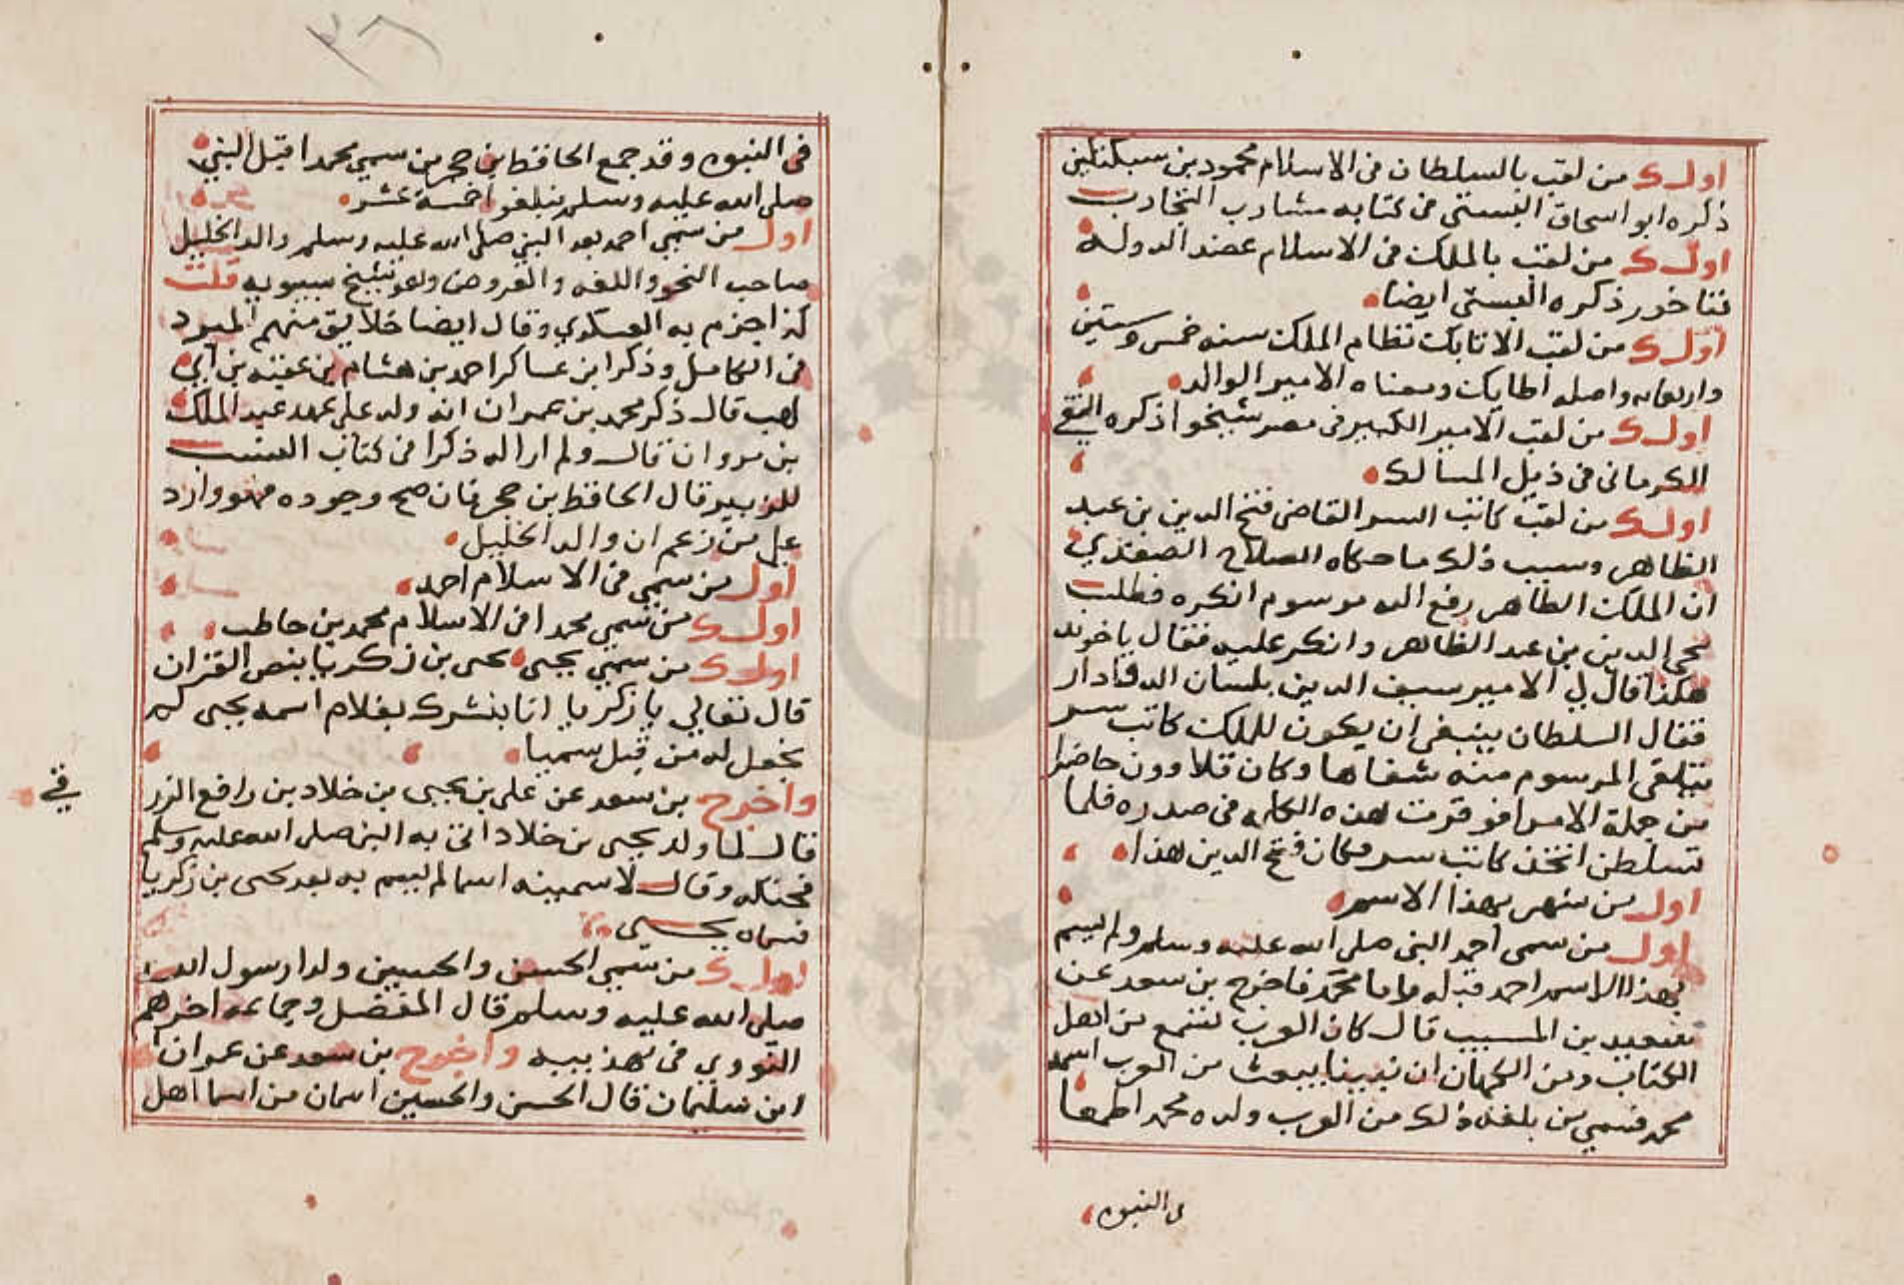 اول من لقب بالسلطان فى الاسلام محمود بن سبكتكين
ذكره ابو اسحاق البستى فى كتابه مشارب التجارب
اول من لقب بالملك فى الاسلام عضد الدوله
فناخور ذكره البستى ايضا
اول من لقب الاتابك نظام الملك سنه خمس وستين
واربعمايه واصله اطابك ومعناه الامير الوالد
اول من لقب الامير الكبير فى مصر شيخوا ذكره التقى
الكرمانى فى ذيل المسالك
اول من لقب كاتب السر القاضى فتح الدين بن عبد
الظاهر وسبب ذلك ما حكاه الصلاح الصفدي
ان الملك الظاهر رفع اليه مرسوم انكره فطلب
محي الدين بن عبد الظاهر وانكر عليه فقال ياخوند
هكذا قال لي الامير سيف الدين بلبان الدوادار
فقال السلطان ينبغى ان يكون للملك كاتب سر
يتلقى المرسوم منه شفاها وكان قلاوون حاضرا
من جملة الامرا فوقرت هذه الكلمه فى صدره فلما
تسلطن اتخذ كاتب سر فكان فتح الدين هذا
اول من شهر بهذا الاسم
اول من سمى احمد النبى صلى الله عليه وسلم ولم يسم
بهذا الاسم احد قبله واما محمد فاخرج بن سعد عن
سعيد بن المسيب قال كان العرب تسمع من اهل
الكتاب ومن الكهان ان نبينا يبعث من العرب اسمه
محمد فسمي من بلغه ذلك من العرب ولده محمد اطمعا
فى النبوه
فى النبوه وقد جمع الحافظ بن حجر من سمي محمدا قبل النبي
صلى الله عليه وسلم فبلغوا خمسة عشر
اول من سمي احمد بعد النبي صلى الله عليه وسلم والد الخليل
صاحب النحو واللغه والعروض وهو شيخ سيبويه قلت
كذا جزم به العسكري وقال ايضا خلايق منهم المبرد
فى الكامل وذكر ابن عساكر احمد بن هشام بن عتبه بن ابي
لهب قال ذكر محمد بن عمران انه ولد على عهد عبد الملك
بن مروان قال ولم ار له ذكرا فى كتاب النسب
للزبير قال الحافظ بن حجر فان صح وجوده فهو وارد
على من زعم ان والد الخليل
اول من سمي فى الاسلام احمد
اول من سمي محمدا فى الاسلام محمد بن حاطب
اول من سمي يحيى يحيى بن زكريا بنص القران
قال تعالي يا زكريا انا نبشرك بغلام اسمه يحيى لم
نجعل له من قبل سميا
واخرج بن سعد عن على بن يحيى بن خلاد بن رافع الزر
قي
قال لما ولد يحيى بن خلاد اتى به النبى صلى الله عليه وسلم
فحنكه وقال لاسمينه اسما لم يسم به بعد يحيى بن زكريا
فسماه يحيى
اول من سمي الحسن والحسين ولدا رسول الله
صلى الله عليه وسلم قال المفضل وجماعه اخرهم
النووي فى تهذيبه واخرج بن سعد عن عمران
ابن سليمان قال الحسن والحسين اسمان من اسما اهل